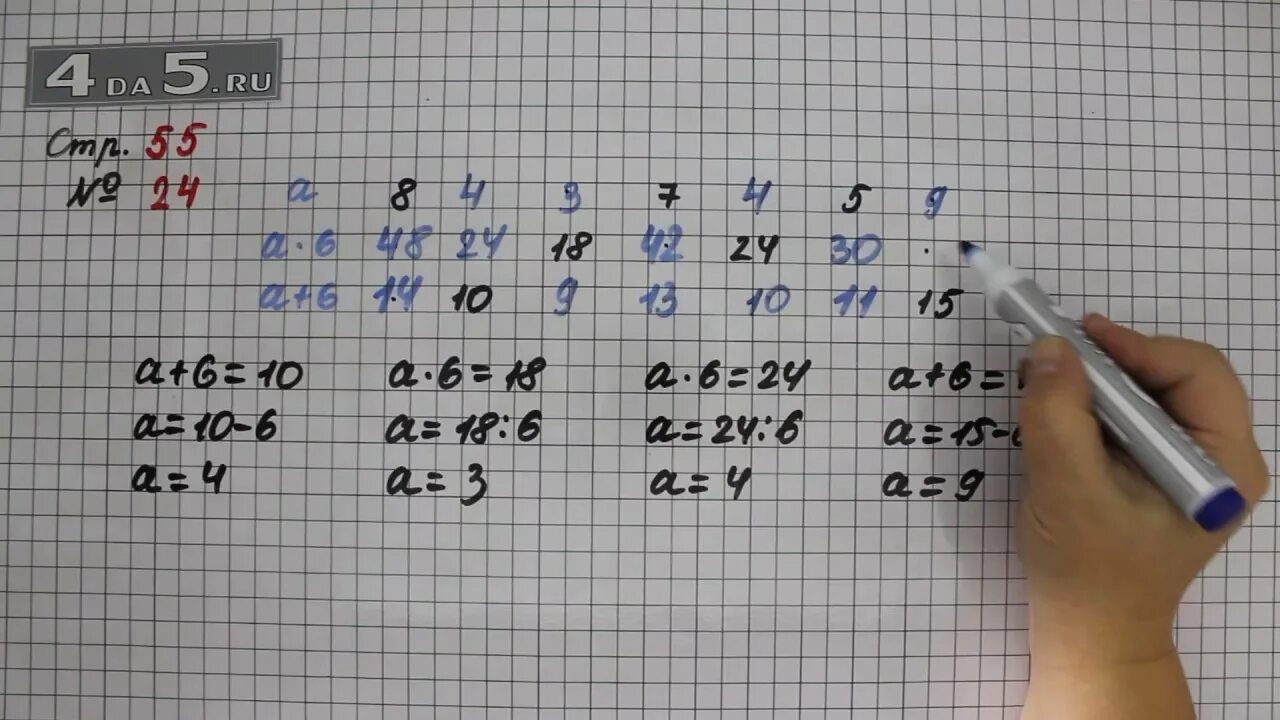 4DA5.RU
Стр. 55
№ 24 a 8 4 3 7 4 5 9
a·6 48 24 18 42 24 30 ·
a+6 14 10 9 13 10 11 15
a+6=10 a·6=18 a·6=24 a+6=
a=10-6 a=18:6 a=24:6 a=15-
a=4 a=3 a=4 a=9